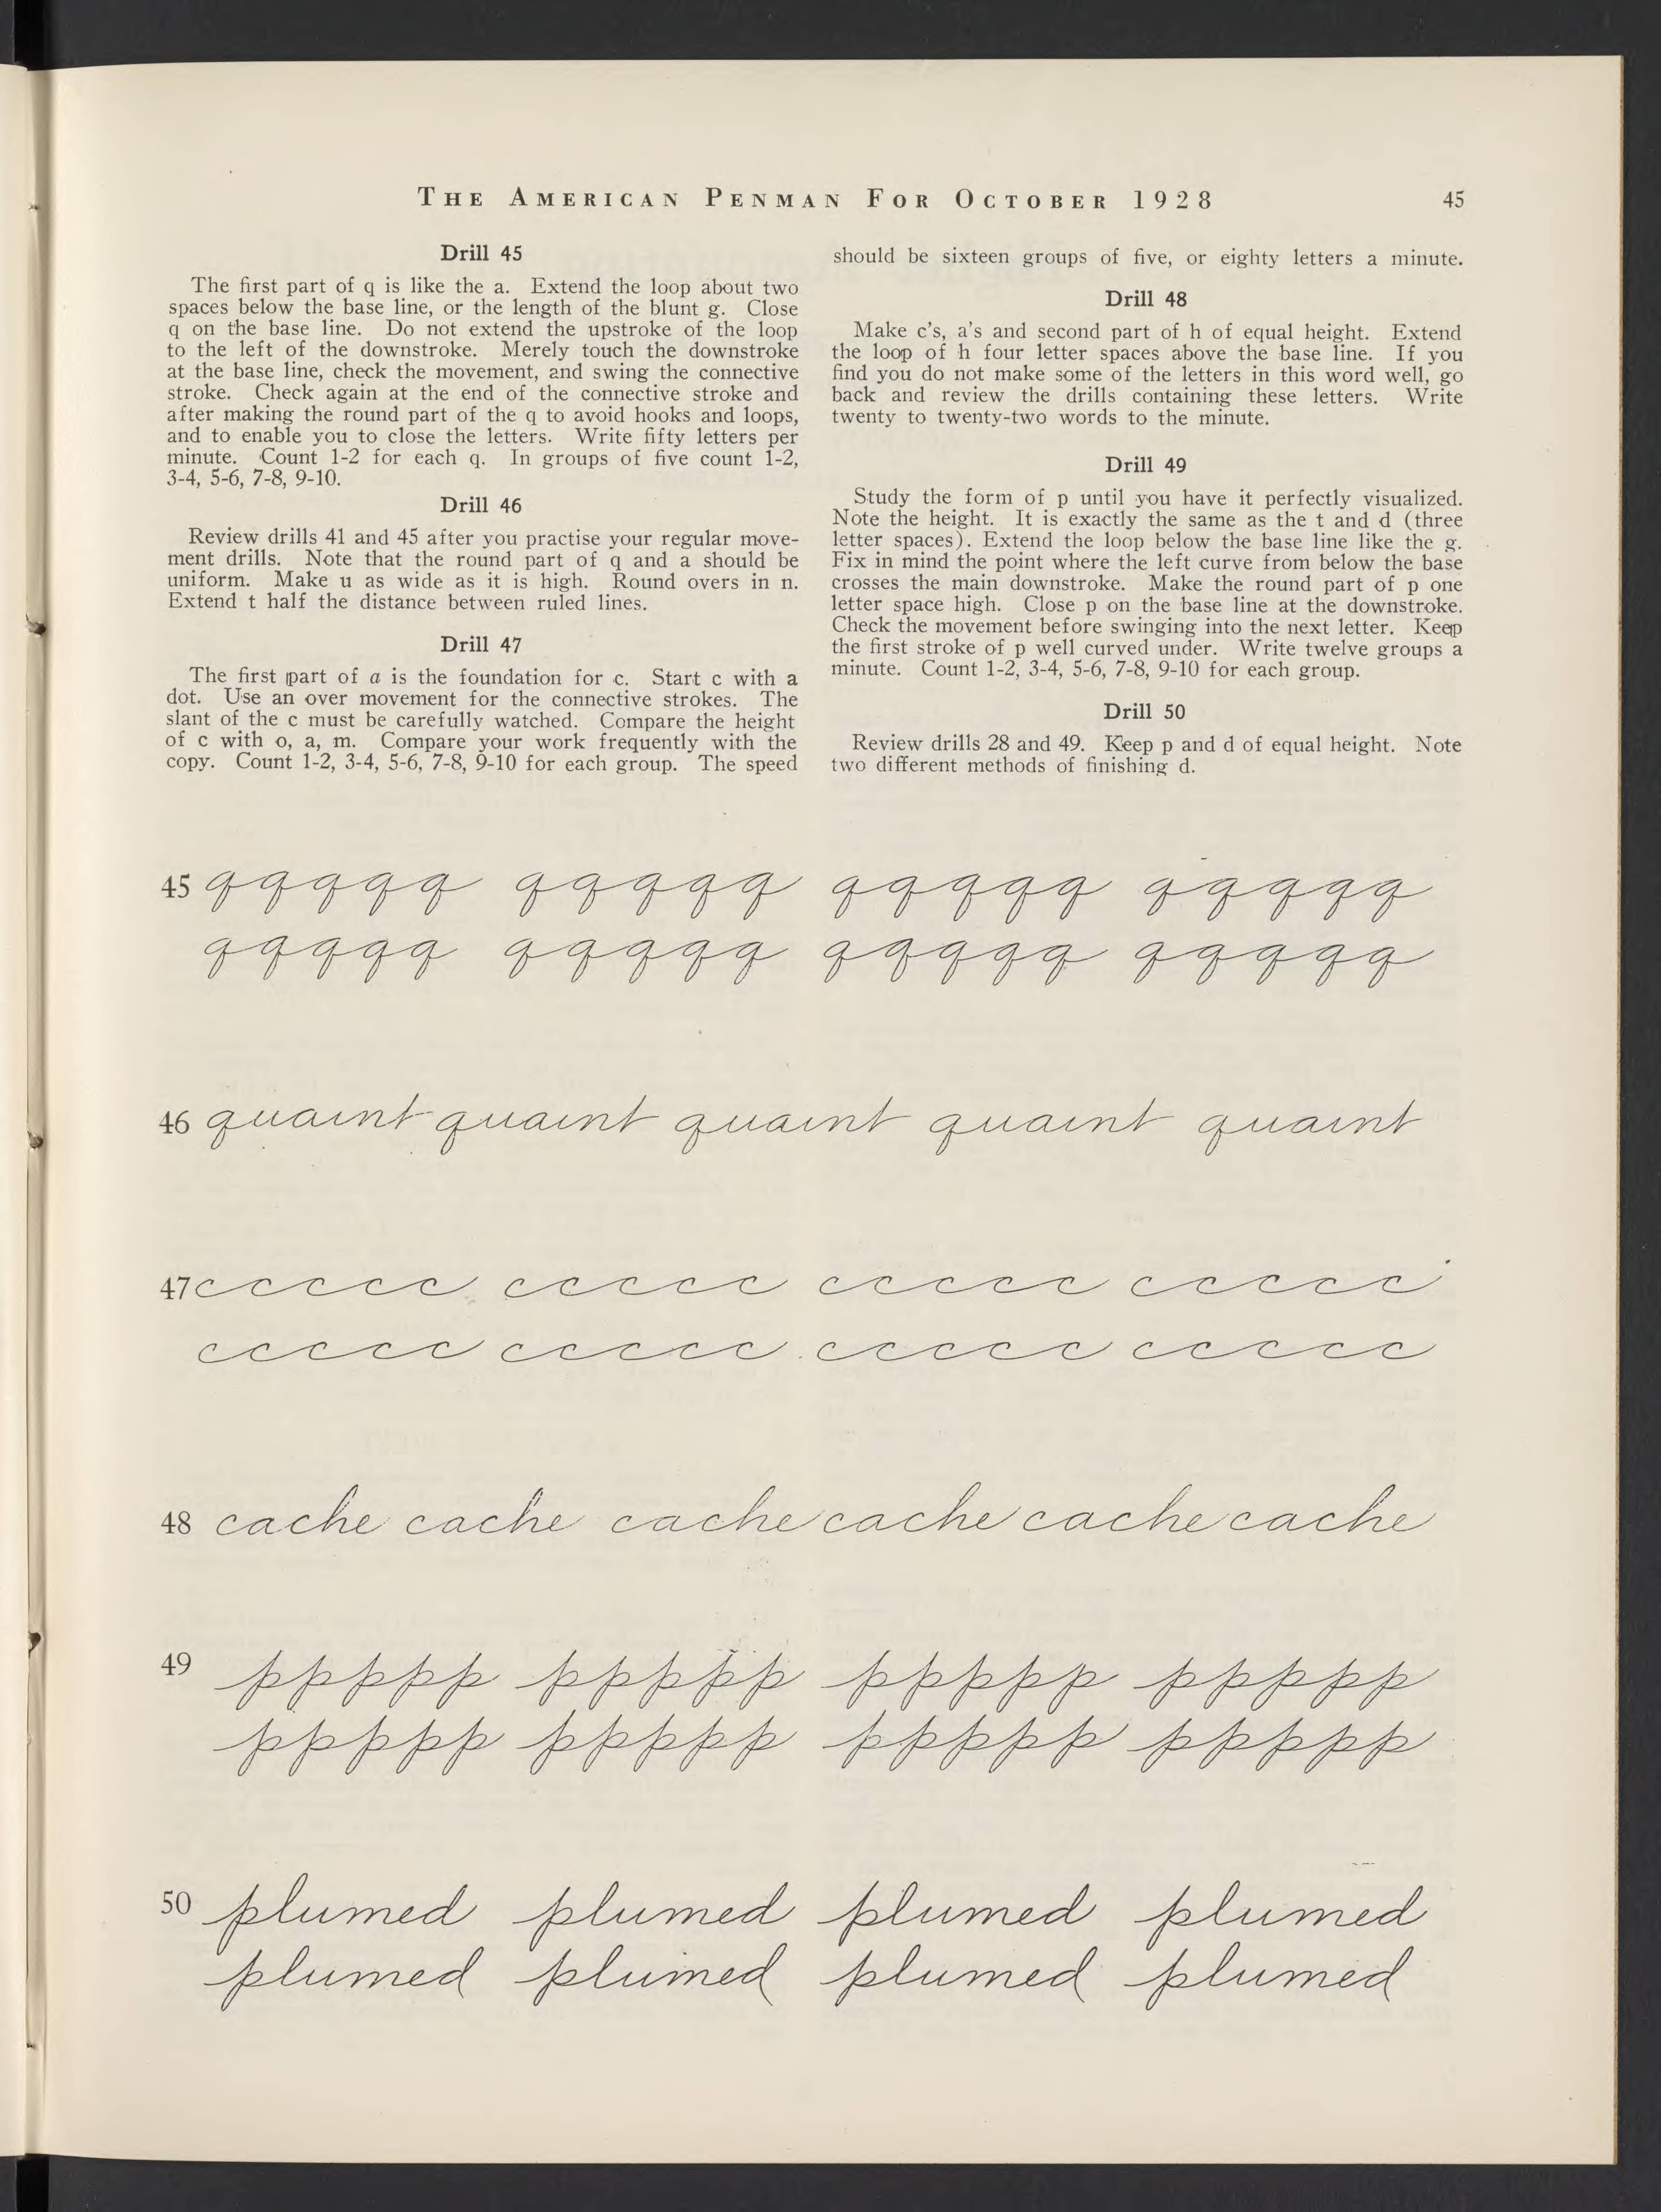 THE AMERICAN PENMAN FOR OCTOBER 1928 45
Drill 45
The first part of q is like the a. Extend the loop about two
spaces below the base line, or the length of the blunt g. Close
q on the base line. Do not extend the upstroke of the loop
to the left of the downstroke. Merely touch the downstroke
at the base line, check the movement, and swing the connective
stroke. Check again at the end of the connective stroke and
after making the round part of the q to avoid hooks and loops,
and to enable you to close the letters. Write fifty letters per
minute. Count 1-2 for each q. In groups of five count 1-2,
3-4, 5-6, 7-8, 9-10.
Drill 46
Review drills 41 and 45 after you practise your regular move-
ment drills. Note that the round part of q and a should be
uniform. Make u as wide as it is high. Round overs in n.
Extend t half the distance between ruled lines.
Drill 47
The first part of a is the foundation for c. Start c with a
dot. Use an over movement for the connective strokes. The
slant of the c must be carefully watched. Compare the height
of c with o, a, m. Compare your work frequently with the
copy. Count 1-2, 3-4, 5-6, 7-8, 9-10 for each group. The speed
should be sixteen groups of five, or eighty letters a minute.
Drill 48
Make c's, a's and second part of h of equal height. Extend
the loop of h four letter spaces above the base line. If you
find you do not make some of the letters in this word well, go
back and review the drills containing these letters. Write
twenty to twenty-two words to the minute.
Drill 49
Study the form of p until you have it perfectly visualized.
Note the height. It is exactly the same as the t and d (three
letter spaces). Extend the loop below the base line like the g.
Fix in mind the point where the left curve from below the base
crosses the main downstroke. Make the round part of p one
letter space high. Close p on the base line at the downstroke.
Check the movement before swinging into the next letter. Keep
the first stroke of p well curved under. Write twelve groups a
minute. Count 1-2, 3-4, 5-6, 7-8, 9-10 for each group.
Drill 50
Review drills 28 and 49. Keep p and d of equal height. Note
two different methods of finishing d.
45 qqqqq qqqqq qqqqq qqqqq
qqqqq qqqqq qqqqq qqqqq
46 quaint quaint quaint quaint quaint
47 ccccc ccccc ccccc ccccc
ccccc ccccc ccccc ccccc
48 cache cache cache cache cache cache
49 ppppp ppppp ppppp ppppp
ppppp ppppp ppppp ppppp
50 plumed plumed plumed plumed
plumed plumed plumed plumed